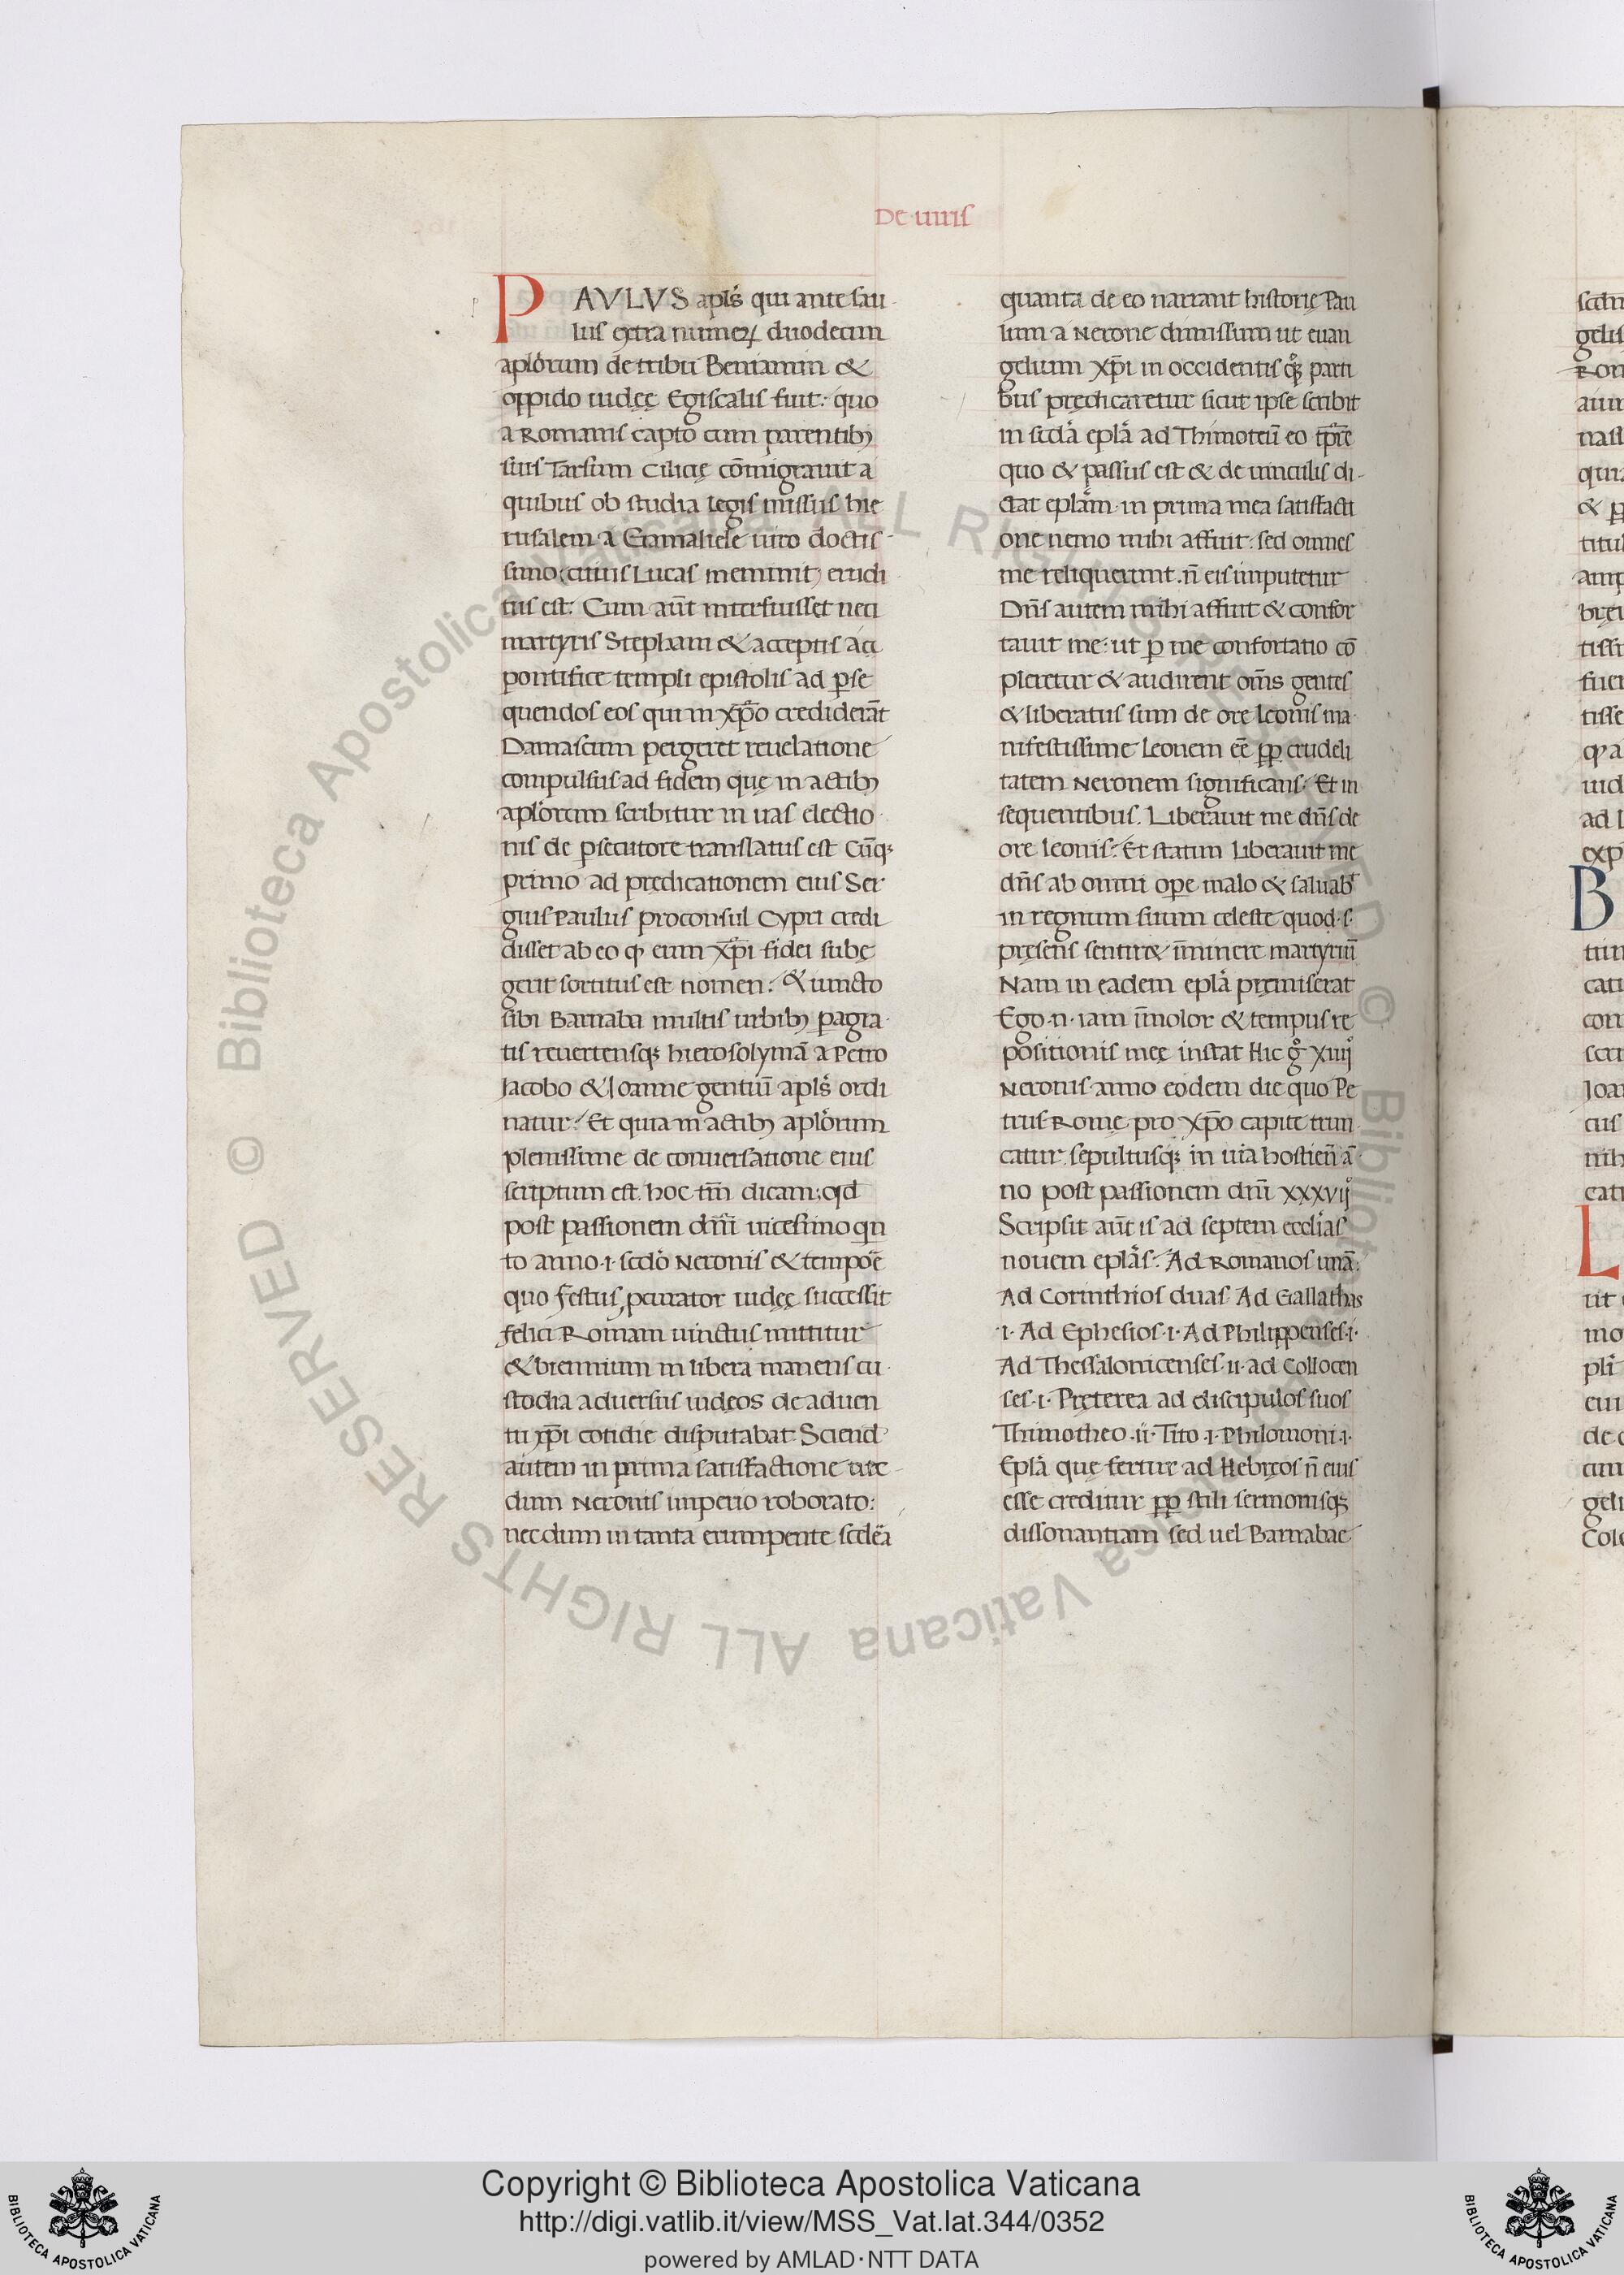 De uiris
PAVLVS apl̃s qui ante sau
lus extra numeꝝ duodecim
apl̃orum de tribu Beniamin &
oppido iudęę Egiscalis fuit: quo
a Romanis capto cum parentibꝫ
suis Tarsum Cilicię cõmigrauit a
quibus ob studia legis missus hie
rusalem a Gamaliele uiro doctis-
simo: cuius Lucas meminit erudi
tus est: Cum aũt interfuisset neci
martyris Stephani & acceptis a
pontifice templi epistolis ad ꝑse
quendos eos qui in xp̃o crediderãt
Damascum pergeret reuelatione
compulsus ad fidem quę in actibꝫ
apl̃orum scribitur in uas electio
nis de ꝑsecutore translatus est Cũqꝫ
primo ad predicationem eius Ser
gius Paulus proconsul Cypri credi
disset ab eo ꝙ eum xp̃i fidei subę
gerit sortitus est nomen: & iuncto
sibi Barnaba multis urbibꝫ ꝑagra
tis reuertensqꝫ hierosolymã a Petro
Jacobo & Joanne gentiũ apl̃s ordi
natur: Et quia in actibꝫ apl̃orum
plenissime de conuersatione eius
scriptum est. hoc tm̃ dicam: qd
post passionem dñi uicesimo qn
to anno .i. scdo Neronis & tempoẽ
quo festus ꝓcurator iudęę successit
felici Romam uinctus mittitur
& biennium in libera manens cu
stodia aduersus iudeos de aduen
tu xp̃i cotidie disputabat Sciend
autem in prima satisfactione nec
dum Neronis imperio roborato:
nec dum in tanta erumpente scelẽa
quanta de eo narrant historię Pau
lum a Nerone dimissum ut euan
gelium xp̃i in occidentis qͦꝫ parti
bus prędicaretur sicut ipse scribit
in scda epl̃a ad Thimoteũ eo tp̃re
quo & passus est & de uinculis di-
ctat epl̃am in prima mea satisfacti
one nemo mihi affuit: sed omnes
me reliquerunt. ñ eis imputetur
Dñs autem mihi affuit & confor
tauit me: ut ꝑ me confortatio cõ
pleretur & audirent om̃s gentes
& liberatus sum de ore leonis ma
nifestissime leonem eẽ ꝓp crudeli
tatem Neronem significans: Et in
sequentibus. Liberauit me dñs de
ore leonis: Et statim Liberauit me
dñs ab omni oꝑe malo & saluab
in regnum suum celeste quod .s.
pręsens sentire ĩminere martyriũ
Nam in eadem epl̃a pręmiserat
Ego .n. iam ĩmolor & tempus re
positionis meę instat Hic gͦ xiiij
Neronis anno eodem die quo Pe
trus Romę pro xp̃o capite trun
catur sepultusqꝫ in uia hostieñ ã
no post passionem dñi xxxvij
Scripsit aũt is ad septem eccl̃ias
nouem epl̃as: Ad Romanos unã:
Ad Corinthios duas Ad Gallathas
.i. Ad Ephesios .i. Ad Philippenses .i.
Ad Thessalonicenses .ii. ad Collocen
ses .i. Pręterea ad discipulos suos
Thimotheo .ii. Tito .i. Philomoni .i.
Epl̃a quę fertur ad Hebręos ñ eius
esse creditur ꝓp stili sermonisqꝫ
dissonantiam sed uel Barnabae
Copyright © Biblioteca Apostolica Vaticana
http://digi.vatlib.it/view/MSS_Vat.lat.344/0352
powered by AMLAD·NTT DATA